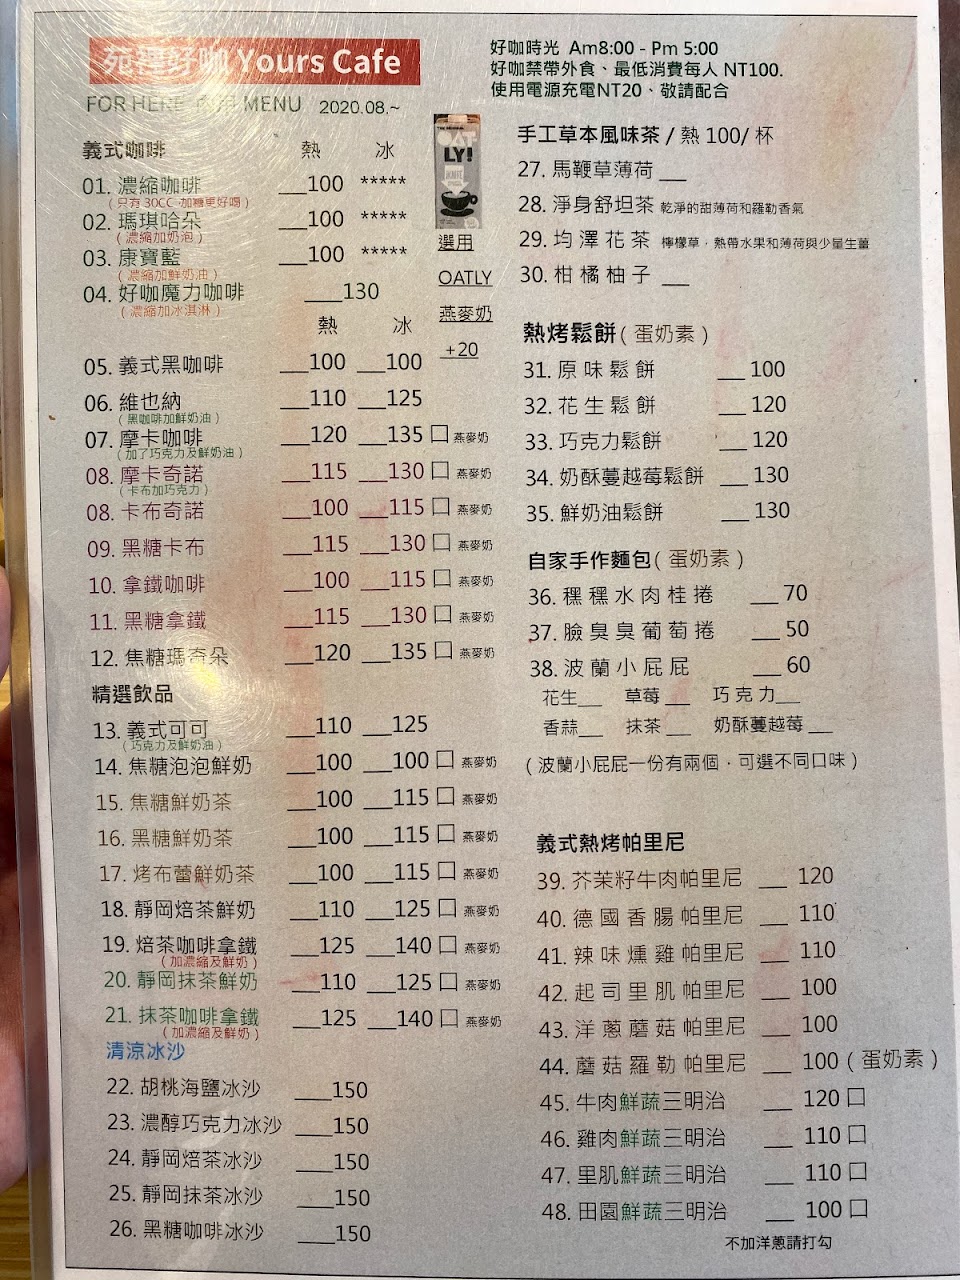 苑裡好咖 Yours Cafe
FOR HERE 內用 MENU 2020.08.~
好咖時光 Am8:00 - Pm 5:00
好咖禁帶外食、最低消費每人 NT100.
使用電源充電NT20、敬請配合
義式咖啡 熱 冰
01. 濃縮咖啡 __100 *****
(只有 30CC 加糖更好喝)
02. 瑪琪哈朵 __100 *****
(濃縮加奶泡)
03. 康寶藍 __100 *****
(濃縮加鮮奶油)
04. 好咖魔力咖啡 ___130
(濃縮加冰淇淋)
OATLY!
選用
OATLY
燕麥奶
+20
熱 冰
05. 義式黑咖啡 __100 __100
06. 維也納 __110 __125
(黑咖啡加鮮奶油)
07. 摩卡咖啡 __120 __135 口 燕麥奶
(加了巧克力及鮮奶油)
08. 摩卡奇諾 __115 __130 口 燕麥奶
(卡布加巧克力)
08. 卡布奇諾 __100 __115 口 燕麥奶
09. 黑糖卡布 __115 __130 口 燕麥奶
10. 拿鐵咖啡 __100 __115 口 燕麥奶
11. 黑糖拿鐵 __115 __130 口 燕麥奶
12. 焦糖瑪奇朵 __120 __135 口 燕麥奶
精選飲品
13. 義式可可 __110 __125
(巧克力及鮮奶油)
14. 焦糖泡泡鮮奶 __100 __100 口 燕麥奶
15. 焦糖鮮奶茶 __100 __115 口 燕麥奶
16. 黑糖鮮奶茶 __100 __115 口 燕麥奶
17. 烤布蕾鮮奶茶 __100 __115 口 燕麥奶
18. 靜岡焙茶鮮奶 __110 __125 口 燕麥奶
19. 焙茶咖啡拿鐵 __125 __140 口 燕麥奶
(加濃縮及鮮奶)
20. 靜岡抹茶鮮奶 __110 __125 口 燕麥奶
21. 抹茶咖啡拿鐵 __125 __140 口 燕麥奶
(加濃縮及鮮奶)
清涼冰沙
22. 胡桃海鹽冰沙 ___150
23. 濃醇巧克力冰沙 ___150
24. 靜岡焙茶冰沙 ___150
25. 靜岡抹茶冰沙 ___150
26. 黑糖咖啡冰沙 ___150
手工草本風味茶 / 熱 100/ 杯
27. 馬鞭草薄荷 __
28. 淨身舒坦茶 乾淨的甜薄荷和羅勒香氣
29. 均澤花茶 檸檬草，熱帶水果和薄荷與少量生薑
30. 柑橘柚子 __
熱烤鬆餅(蛋奶素)
31. 原味鬆餅 __ 100
32. 花生鬆餅 __ 120
33. 巧克力鬆餅 __ 120
34. 奶酥蔓越莓鬆餅 __ 130
35. 鮮奶油鬆餅 __ 130
自家手作麵包(蛋奶素)
36. 稞稞水肉桂捲 __ 70
37. 臉臭臭葡萄捲 __ 50
38. 波蘭小屁屁 __ 60
花生__ 草莓__ 巧克力__
香蒜__ 抹茶__ 奶酥蔓越莓__
(波蘭小屁屁一份有兩個，可選不同口味)
義式熱烤帕里尼
39. 芥茉籽牛肉帕里尼 __ 120
40. 德國香腸帕里尼 __ 110
41. 辣味燻雞帕里尼 __ 110
42. 起司里肌帕里尼 __ 100
43. 洋蔥蘑菇帕里尼 __ 100
44. 蘑菇羅勒帕里尼 __ 100 (蛋奶素)
45. 牛肉鮮蔬三明治 __ 120 口
46. 雞肉鮮蔬三明治 __ 110 口
47. 里肌鮮蔬三明治 __ 110 口
48. 田園鮮蔬三明治 __ 100 口
不加洋蔥請打勾